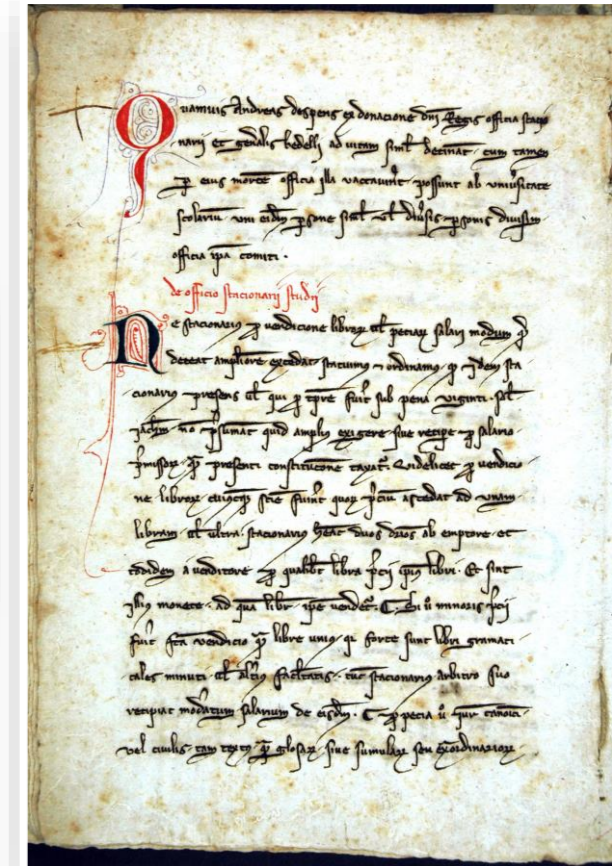 Quamuis Andreas despens ex donacione dni Regis officia stacio
narii et gnalis bedelli ad vitam siml detineat cum tamen
p eius mortem officia illa vaccauerint possunt ab vniuersitate
scolarium vni eidem psone siml vl diuersis psonis diuisim
officia ipa comitti
de officio stacionarii studii
Ne stacionarius p vendicione librorum vl peciarum salarii modum
debeat ampliorem excedat statuimus et ordinamus idem sta
cionarius presens vl qui p tpre fuerit sub pena viginti sol
no psumat quid amplius exigere siue recipe p salario
pmissorum presenti constitucione taxatur videlicet p vendicio
ne librorum scie fuerint quorum pcium ascendat ad vnam
libram vl vltra stacionarius heat duos dros ab emptore et
totidem a venditore p qualibet libra pcii ipius libri Et sint
illius monete ad quam liber ipe vendetur Si u minoris pcii
fuerit fca vendicio libre vnius forte sunt libri gramati
cales minuti vl alterius facultatis tunc stacionarius arbitrio suo
recipiat moderatum salarium de eisdem p pecia u iuris canonici
vel ciuilis tam textus glosarum siue sumularum seu extraordinariorum